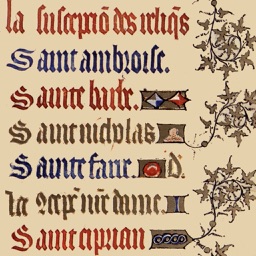 la suscepciõ des reliq̃s
Saint ambroise.
Sainte barbe.
Saint nicholas
Sainte fare. D.
la 9cep̃ nr̃e dame.
Saint ciprian